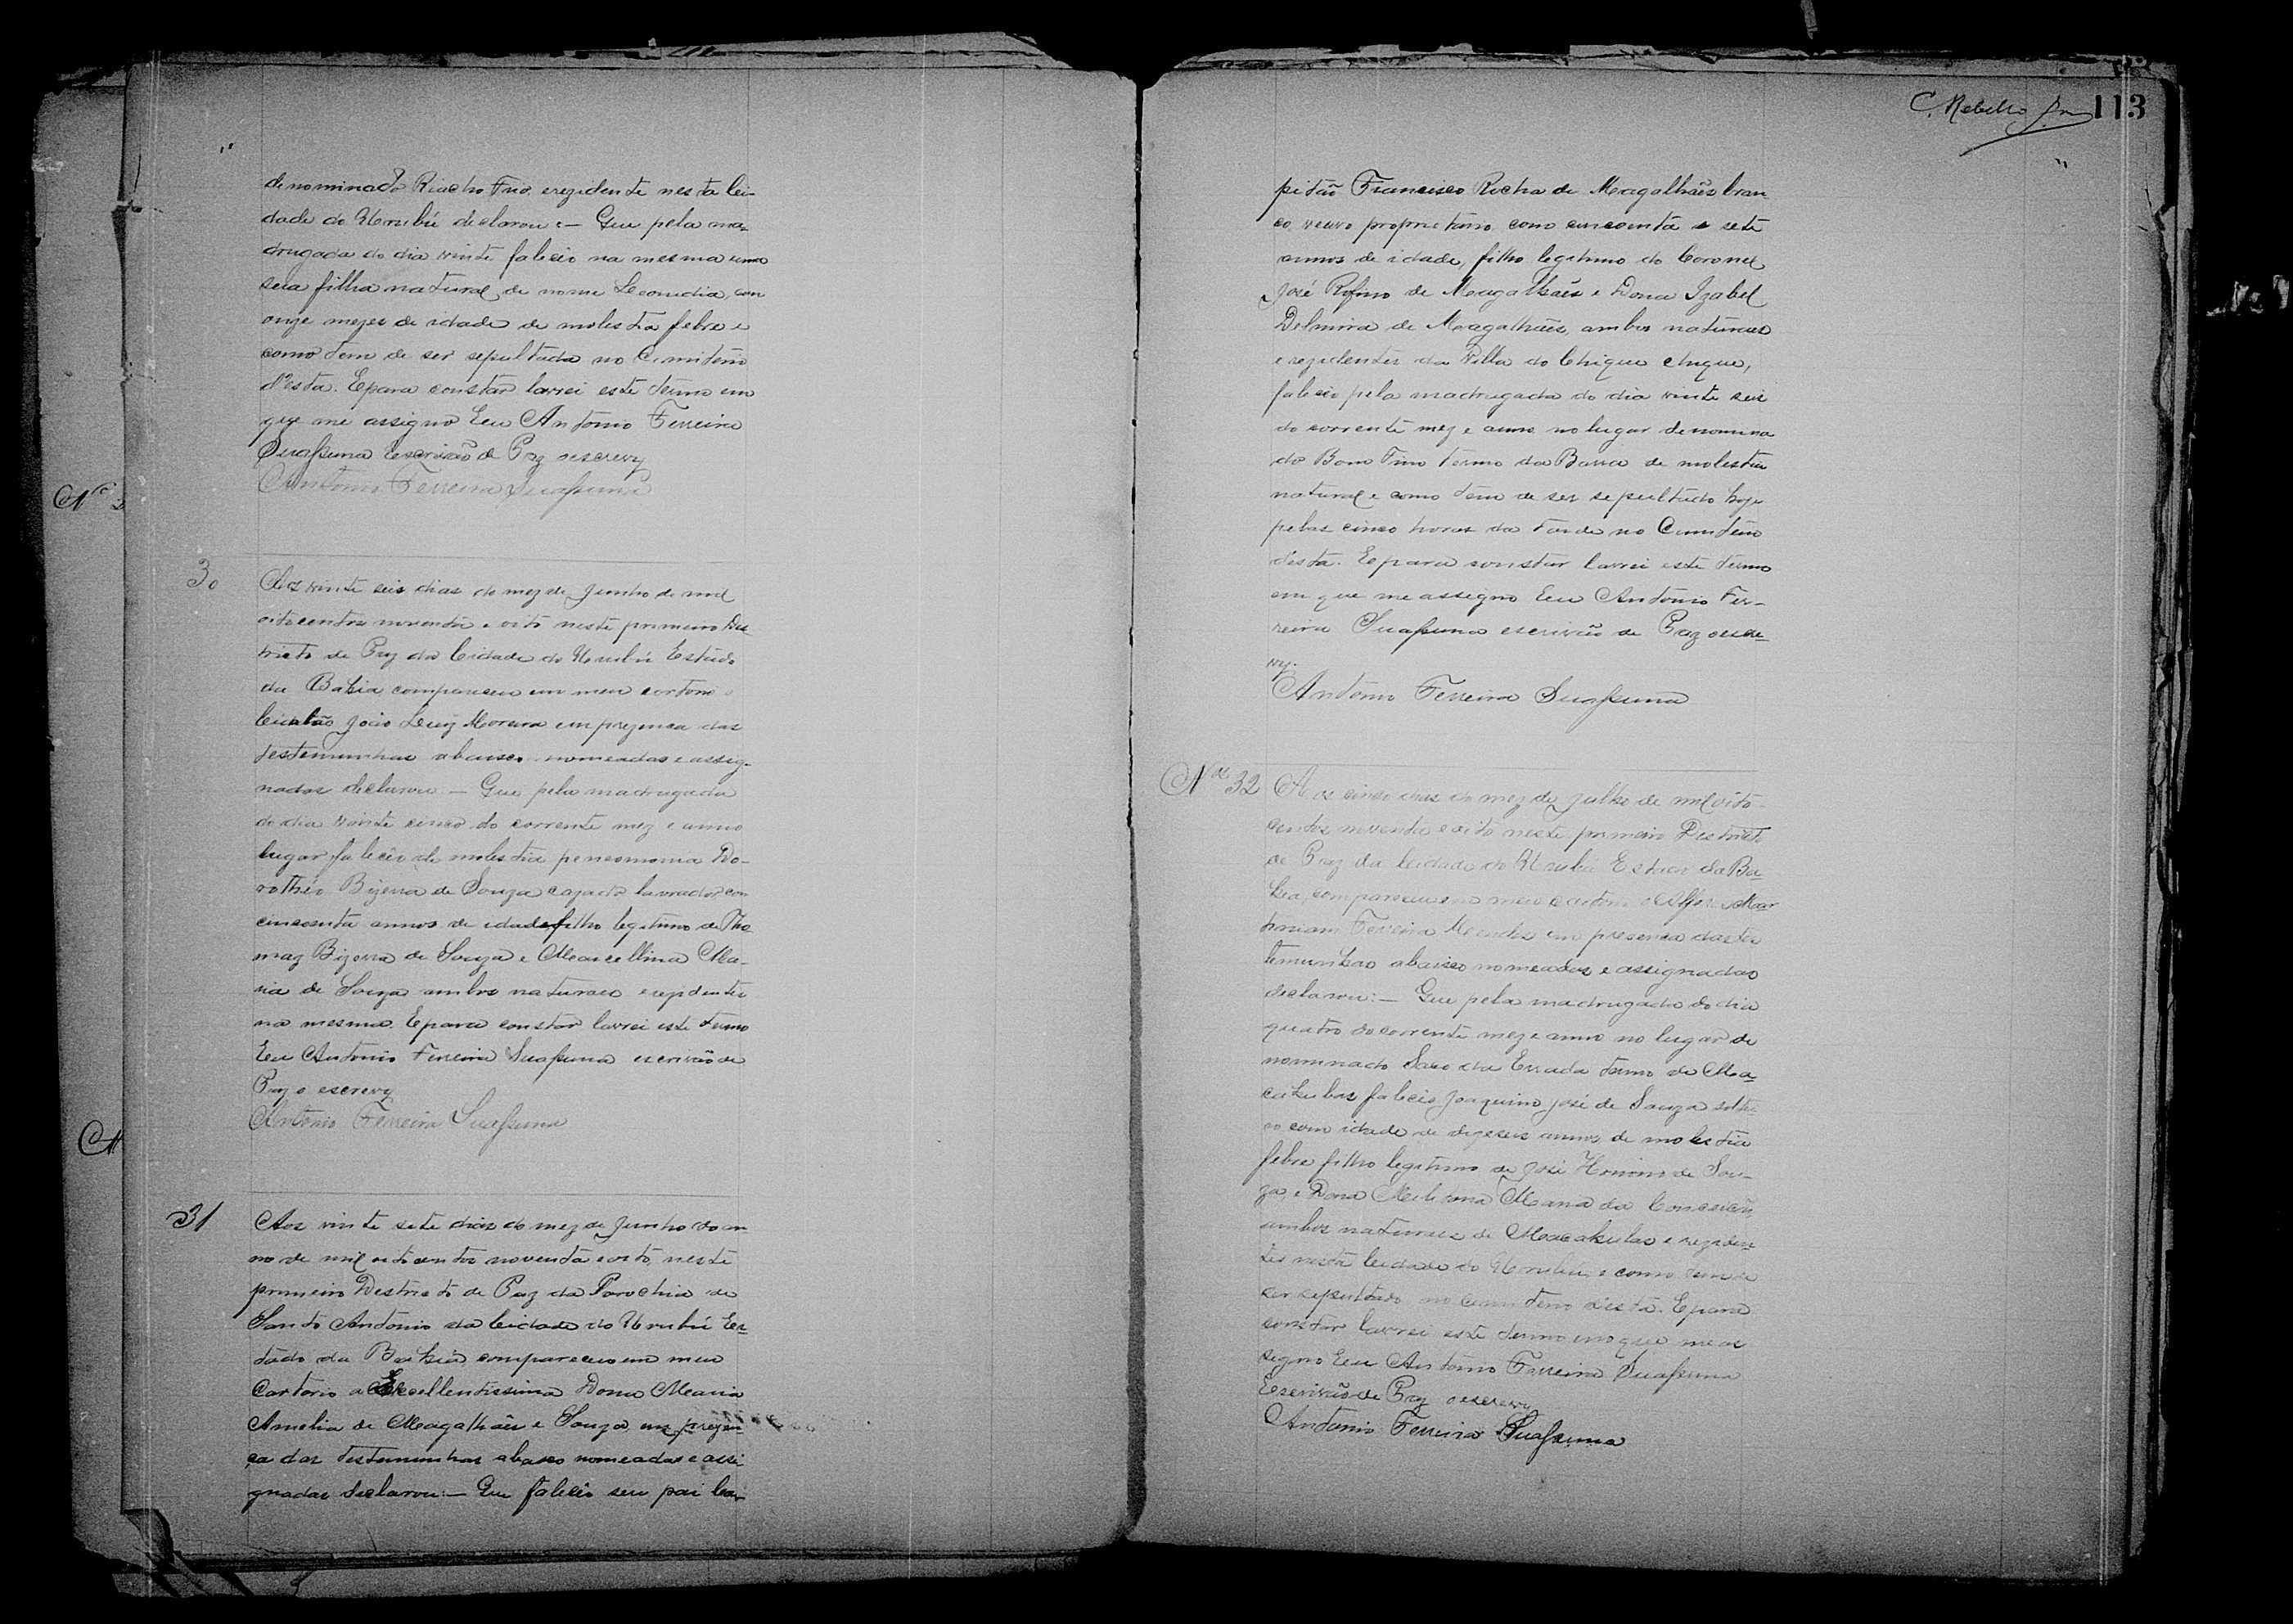 denominado Riacho Frio, erezidente nesta Ci-
dade do Urubú declarou: — Que pela ma-
drugada do dia vinte faleceo na mesma uma
sua filha natural de nome Leonidia, com
onze mezes de idade de molestia febre e
como tem de ser sepultada no Cimiterio
d'esta. Epara constar lavrei este termo em
que me assigno Eu Antonio Ferreira
Suassuna Escrivão de Paz oescrevy
Antonio Ferreira Suassuna
30
Aos vinte seis dias do mez de Junho de mil
oitocentos noventa e oito neste primeiro Des-
tricto de Paz da Cidade do Urubú Estado
da Bahia compareceu em meu cartorio o
Cidadão João Luiz Moreira em prezença das
testemunhas abaixo nomeadas e assig-
nadas declarou — Que pela madrugada
do dia vinte cinco do corrente mez e anno
lugar faleceo de molestia peneomonia Do-
rothéo Bizerra de Souza cazado lavrador com
cincoenta annos de idade filho legitimo de Tho
maz Bizerra de Souza e Marcellina Ma-
ria de Souza ambos naturaes erezidentes
na mesma. Epara constar lavrei este termo
Eu Antonio Ferreira Suassuna escrivão de
Paz o escrevy
Antonio Ferreira Suassuna
31
Aos vinte sete dias do mez de Junho do an
no de mil oitocentos noventa e oito, neste
primeiro Destricto de Paz da Parochia de
Santo Antonio da Cidade do Urubú Es-
tado da Bahia compareceu em meu
Cartorio a Excellentissima Dona Maria
Amelia de Magalhães e Souza em prezen-
ça das testemunhas abaxo nomeadas e assi
gnadas declarou: — Que faleceo seu pai Ca-
C. Rebello Jn 113
pitão Francisco Rocha de Magalhães bran
co, veuvo proprietario, com cincoenta e sete
annos de idade, filho legitimo do Coronel
José Rufino de Magalhães e Dona Izabel
Delmira de Magalhães, ambos naturaes
e rezidentes da Villa do Chique chique,
faleceo pela madrugada do dia vinte seis
do corrente mez e anno no lugar denomina
do Bom Fim termo da Barra de molestia
natural e como tem de ser sepultado hoje
pelas cinco horas da tarde no Cimiterio
desta. Epara constar lavrei este termo
em que me assigno Eu Antonio Fer-
reira Suassuna escrivão de Paz oescre-
vy.
Antonio Ferreira Suassuna
Nº 32
Aos cinco dias do mez de Julho de mil oito-
centos noventa e oito neste primeiro Destricto
de Paz da Cidade do Urubú Estado da Ba-
hia, compareceu em meu cartorio o Alferes Mar
Ferreira Mendes em presença das tes
temunhas abaixo nomeadas e assignadas
declarou: — Que pela madrugada do dia
quatro do corrente mez e anno no lugar de
nominado Saco da Errada termo de Ma-
cahubas faleceo Joaquim José de Souza soltei
ro com idade de dezeseis annos, de molestia
febre filho legitimo de José Honorio de Sou-
za, e Dona Maria da Conceicão
ambos naturaes de Macahubas e reziden-
tes nesta Cidade do Urubú, e como tem de
ser sepultado no Cimiterio desta. Epara
constar lavrei este termo em que me as
signo Eu Antonio Ferreira Suassuna
Escrivão de Paz oescrevy
Antonio Ferreira Suassuna